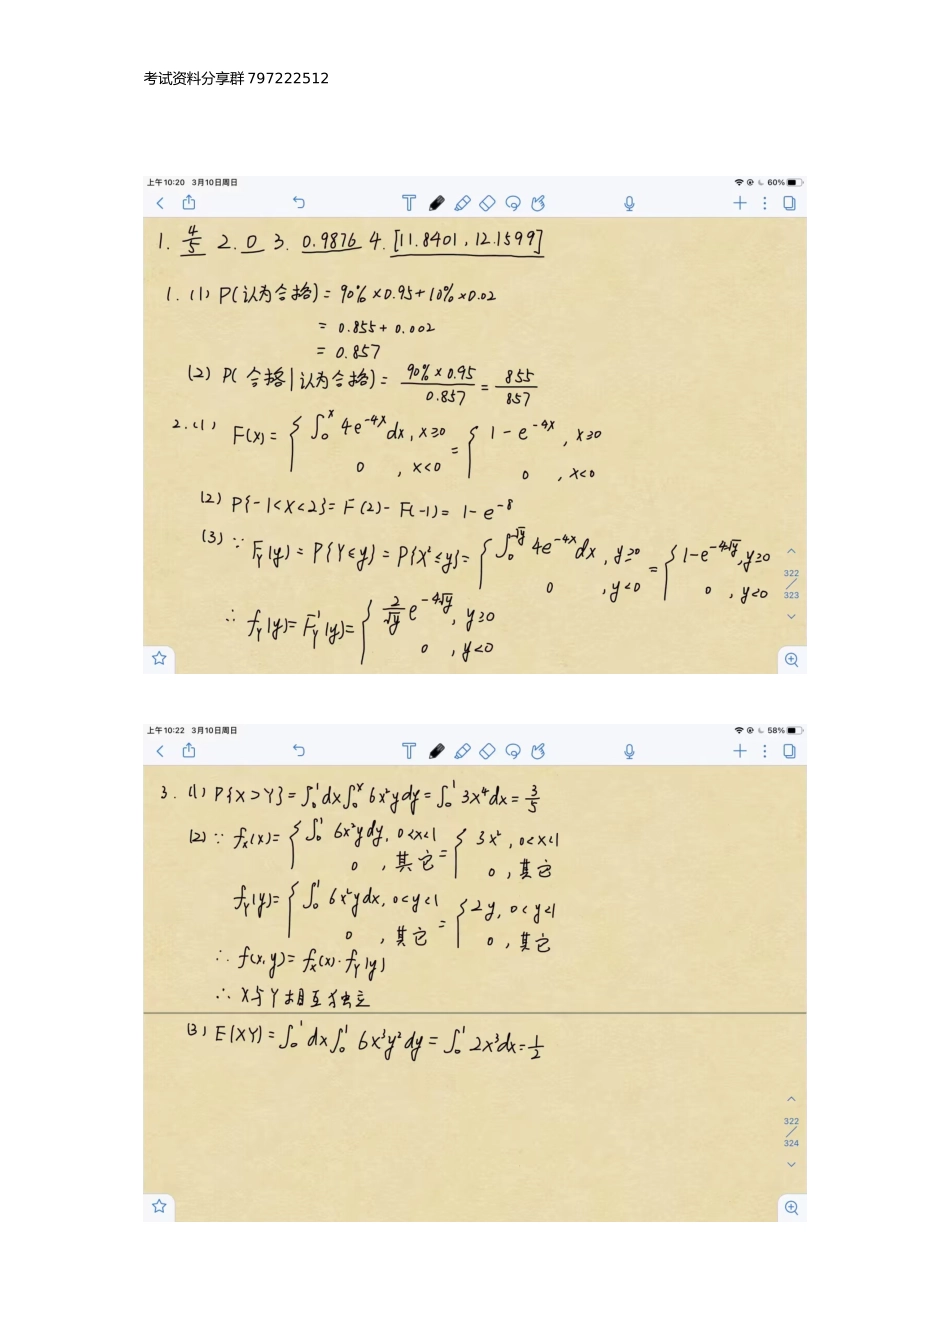 考试资料分享群 797222512
上午10:20 3月10日周日 60%
1. 4/5 2. 0 3. 0.9876 4. [11.8401, 12.1599]
1. (1) P(认为合格) = 90% × 0.95 + 10% × 0.02
= 0.855 + 0.002
= 0.857
(2) P(合格|认为合格) = (90% × 0.95)/0.857 = 855/857
2. (1) F(x) = { ∫₀ˣ 4e^(-4x) dx, x≥0 = { 1 - e^(-4x), x≥0
0, x<0 0, x<0
(2) P{-1<X<2} = F(2) - F(-1) = 1 - e^(-8)
(3) ∵ F_Y(y) = P{Y≤y} = P{X²≤y} = { ∫₀^√y 4e^(-4x) dx, y≥0 = { 1 - e^(-4√y), y≥0
0, y<0 0, y<0
322
323
∴ f_Y(y) = F_Y'(y) = { 2/√y e^(-4√y), y≥0
0, y<0
上午10:22 3月10日周日 58%
3. (1) P{X>Y} = ∫₀¹ dx ∫₀ˣ 6x²y dy = ∫₀¹ 3x⁴ dx = 3/5
(2) ∵ f_X(x) = { ∫₀¹ 6x²y dy, 0<x<1 = { 3x², 0<x<1
0, 其它 0, 其它
f_Y(y) = { ∫₀¹ 6x²y dx, 0<y<1 = { 2y, 0<y<1
0, 其它 0, 其它
∴ f(x,y) = f_X(x)·f_Y(y)
∴ X与Y相互独立
(3) E(XY) = ∫₀¹ dx ∫₀¹ 6x³y² dy = ∫₀¹ 2x³ dx = 1/2
322
324